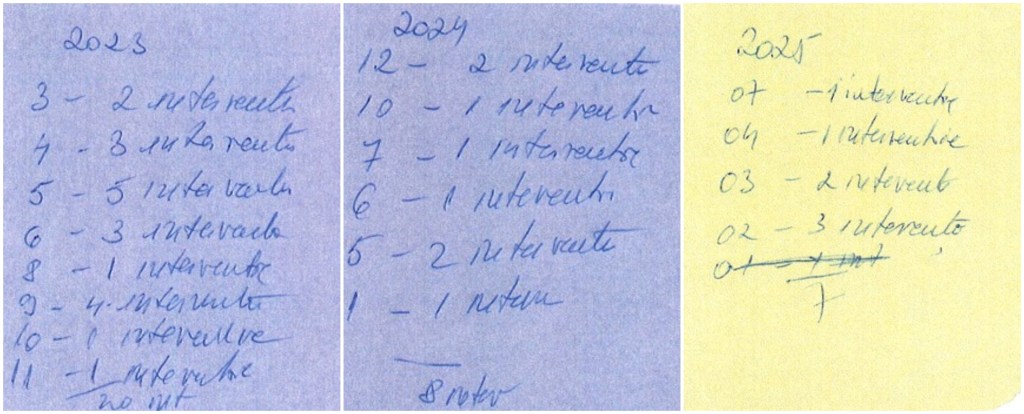 2023
3 - 2 interventii
4 - 3 interventii
5 - 5 interventii
6 - 3 interventii
8 - 1 interventie
9 - 4 interventii
10 - 1 interventie
11 - 1 interventie
20 int
2024
12 - 2 interventii
10 - 1 interventie
7 - 1 interventie
6 - 1 interventi
5 - 2 interventii
1 - 1 interv
8 interv
2025
07 - 1 interventie
04 - 1 interventie
03 - 2 interventii
02 - 3 interventii
01 - 1 int
7